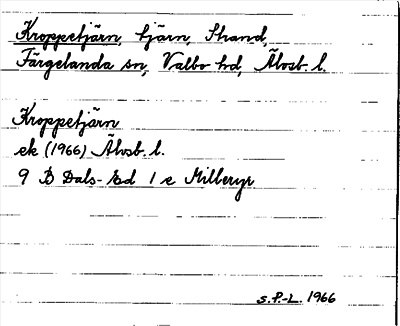 Kroppetjärn, tjärn, Strand,
Färgelanda sn, Valbo hd, Älvsb. l.
Kroppetjärn
ek (1966) Älvsb. l.
9 B Dals-Ed 1 e Millberyr
S.P.-L. 1966